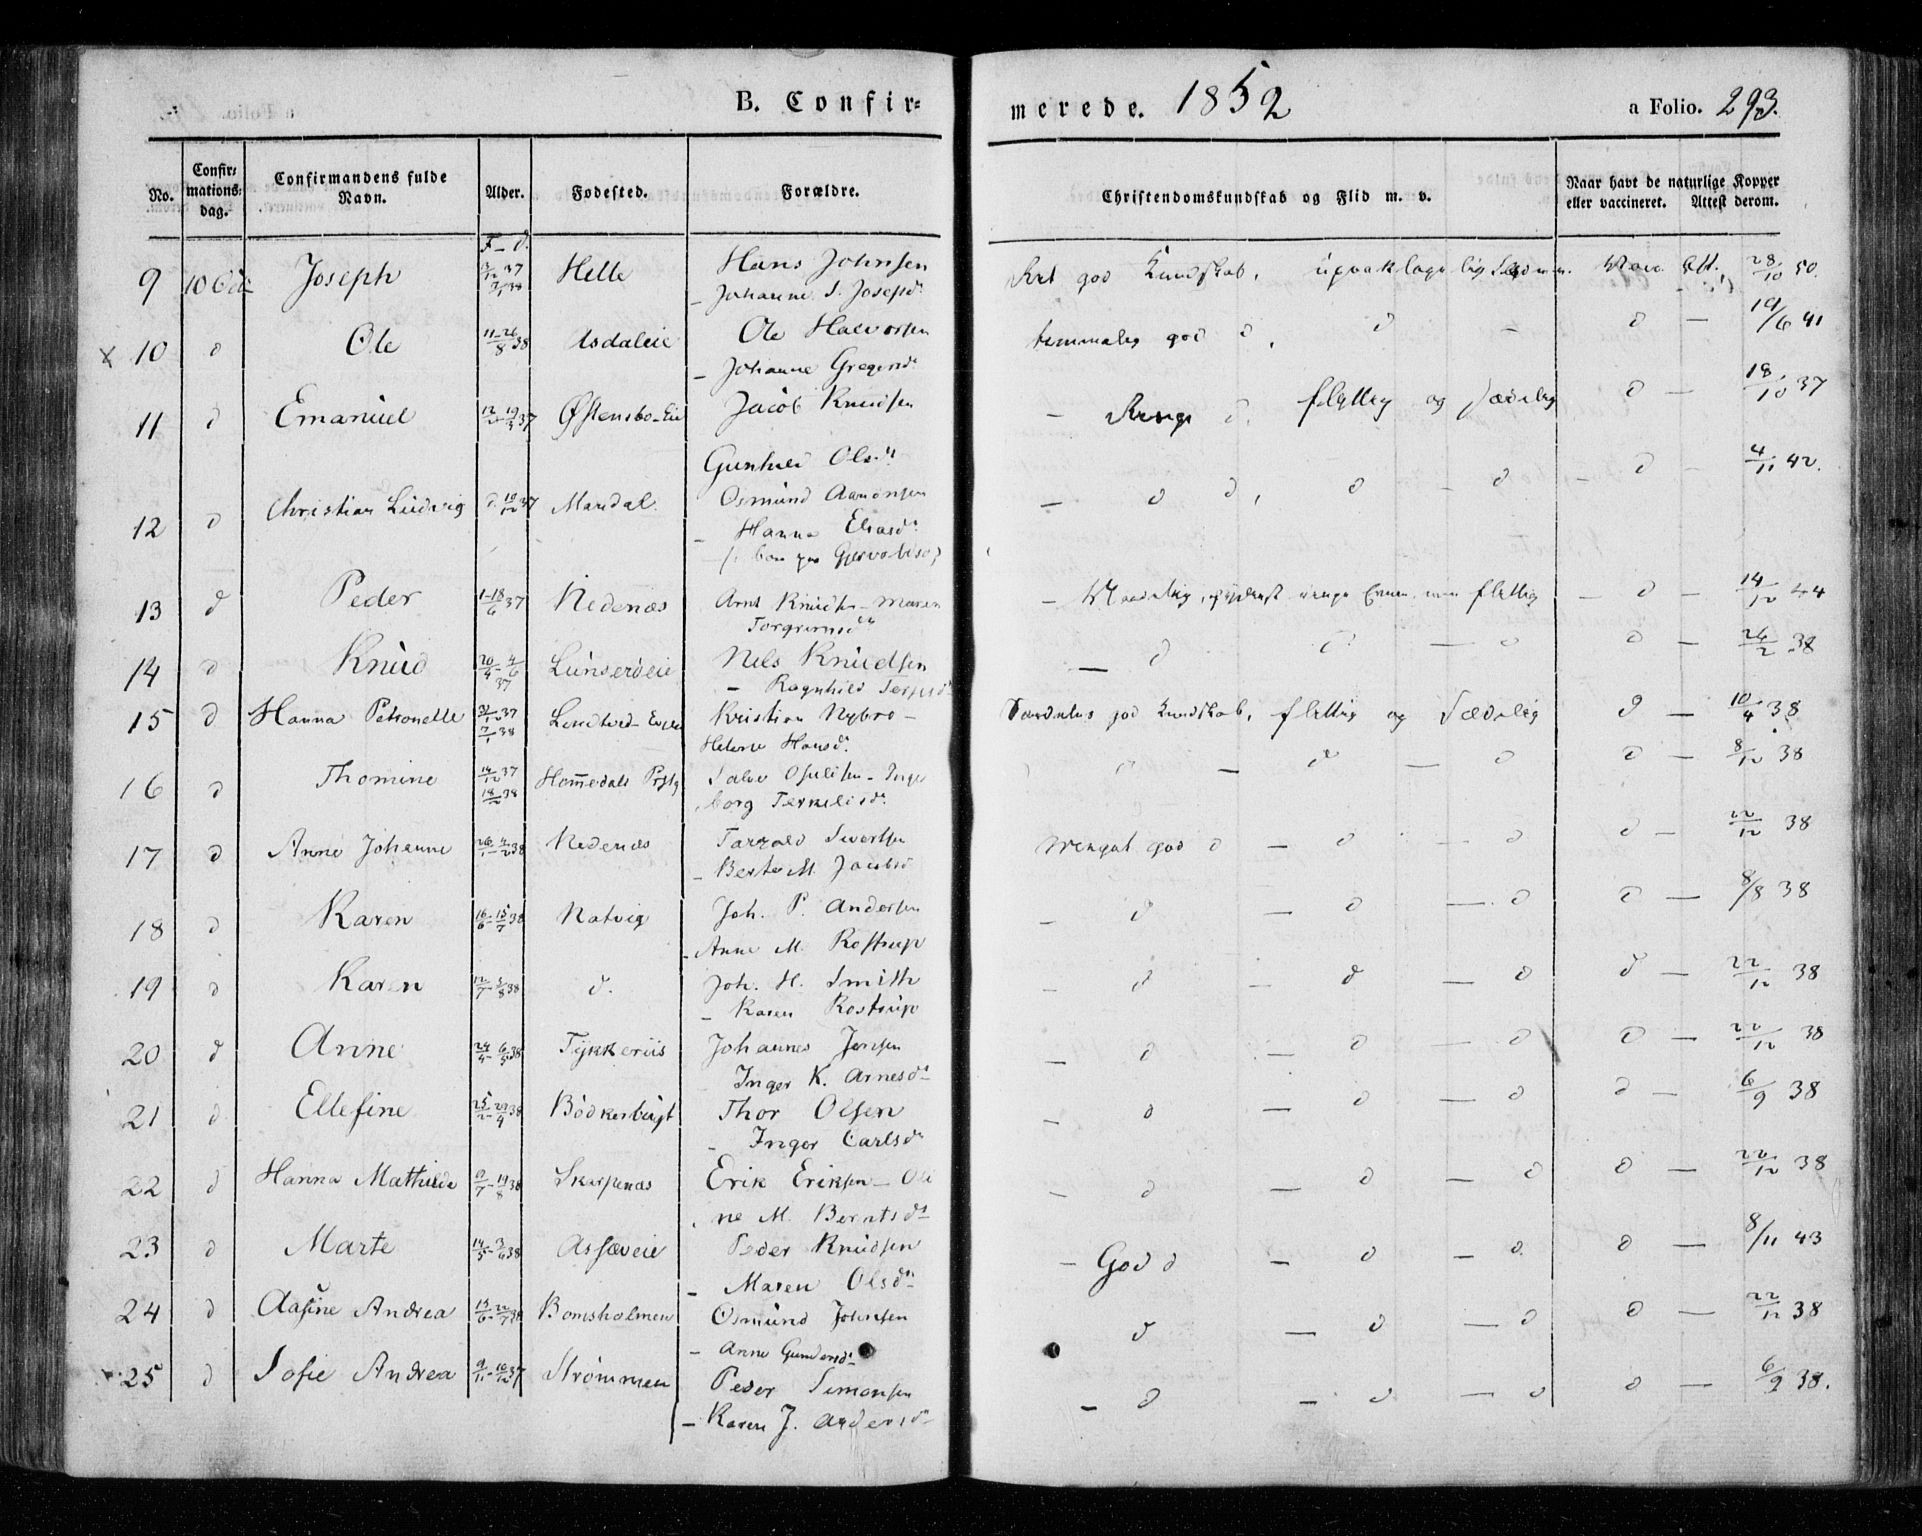 B. Confir=
merede. 1852
a Folio. 293.
No.
Confir=
mations=
dag.
Confirmandens fulde
Navn.
Alder.
Fødested.
Forældre.
Christendomskundskab og Flid m. v.
Naar havt de naturlige Kopper
eller vaccineret. Attest derom.
F - d.
9 10 Joseph 37 38 Helle Hans Johnsen
- Johanne S. Josepsd. god Kundskab, Vacc. Att. 28/10 50.
x 10 d Ole 11-26/8 38 Asdaleie Ole Halvorsen
- Johanne Gregersd. temmelig god d, d - d - 19/6 41
11 d Emanuel 37 Østensbo-Eie Jacob Knudsen
Gunhild Olsd. - Ringe d. flittig og Sædelig d - 18/10 37
12 d Christian Ludvig d 19/12 37 Mandal. Osmund Aanonsen
- Hanna Eliasd. - d d, d - d - d - 4/11 42.
13 d Peder 1-18/6 37 Nedenæs Arnt Knudsen - Maren
Torgrimsd. - flittig - d - 14/12 44
14 d Knud 20/4 - 4/6 37 Lunserødeie Nils Knudsen
- Ragnhild - d d - d d - 26/2 38
15 d Hanna Petronelle 31/12 37 7/1 38 Kristian Nybro -
Helene Hansd. Særdeles god Kundskab, flittig og Sædelig d - 10/4 38
16 d Thomine 14/12 37 18/2 38 Hommedals Prstg Salve - Inge
borg Terkelsd. - d - d d - 8/12 38
17 d Anne Johanne 26/1 - 4/2 38 Nedenæs Tarald Sivertsen
- Berte M. Jacobsd Meget god d - d - d d - 22/12 38
18 d Karen 16/6 - 15/7 38 Natvig Joh. P. Andersen
- Anne M. Rostrup - d - d - d d - 8/8 38
19 d Karen 12/7 - 5/8 38 d. Joh. H. Smith
- Karen Rostrup - d - d - d d - 22/12 38
20 d Anne 24/4 - 6/5 38 Tykkeriis Johannes Jensen
Inger K. Arnesd. - d - d - d d - 22/12 38
21 d Ellefine 25/2 - 29/4 38 Bødkerbugt Thor Olsen
- Inger Carlsd. - d - d - d d - 6/9 38
22 d Hanna Mathilde 9/7 - 19/8 38 Skarpenæs Erik Eriksen - Oli
ne M. Berntsd. - d - d - d d - 22/12 38
23 d Marte 14/5 - 3/6 38 Assæveie Peder Knudsen
- Maren Olsd. - God d - d - d d - 8/11 43
24 d Aasine Andrea 13/6 - 22/7 38 Bomsholmen Osmund Johnsen
- Anne Gundersd. d - d - d d - 22/12 38
25 d Sofie Andrea 9/11 - 10/12 37 Strømmen Peder Simonsen
- Karen J. Andersd. - d - d - d d - 6/9 38.